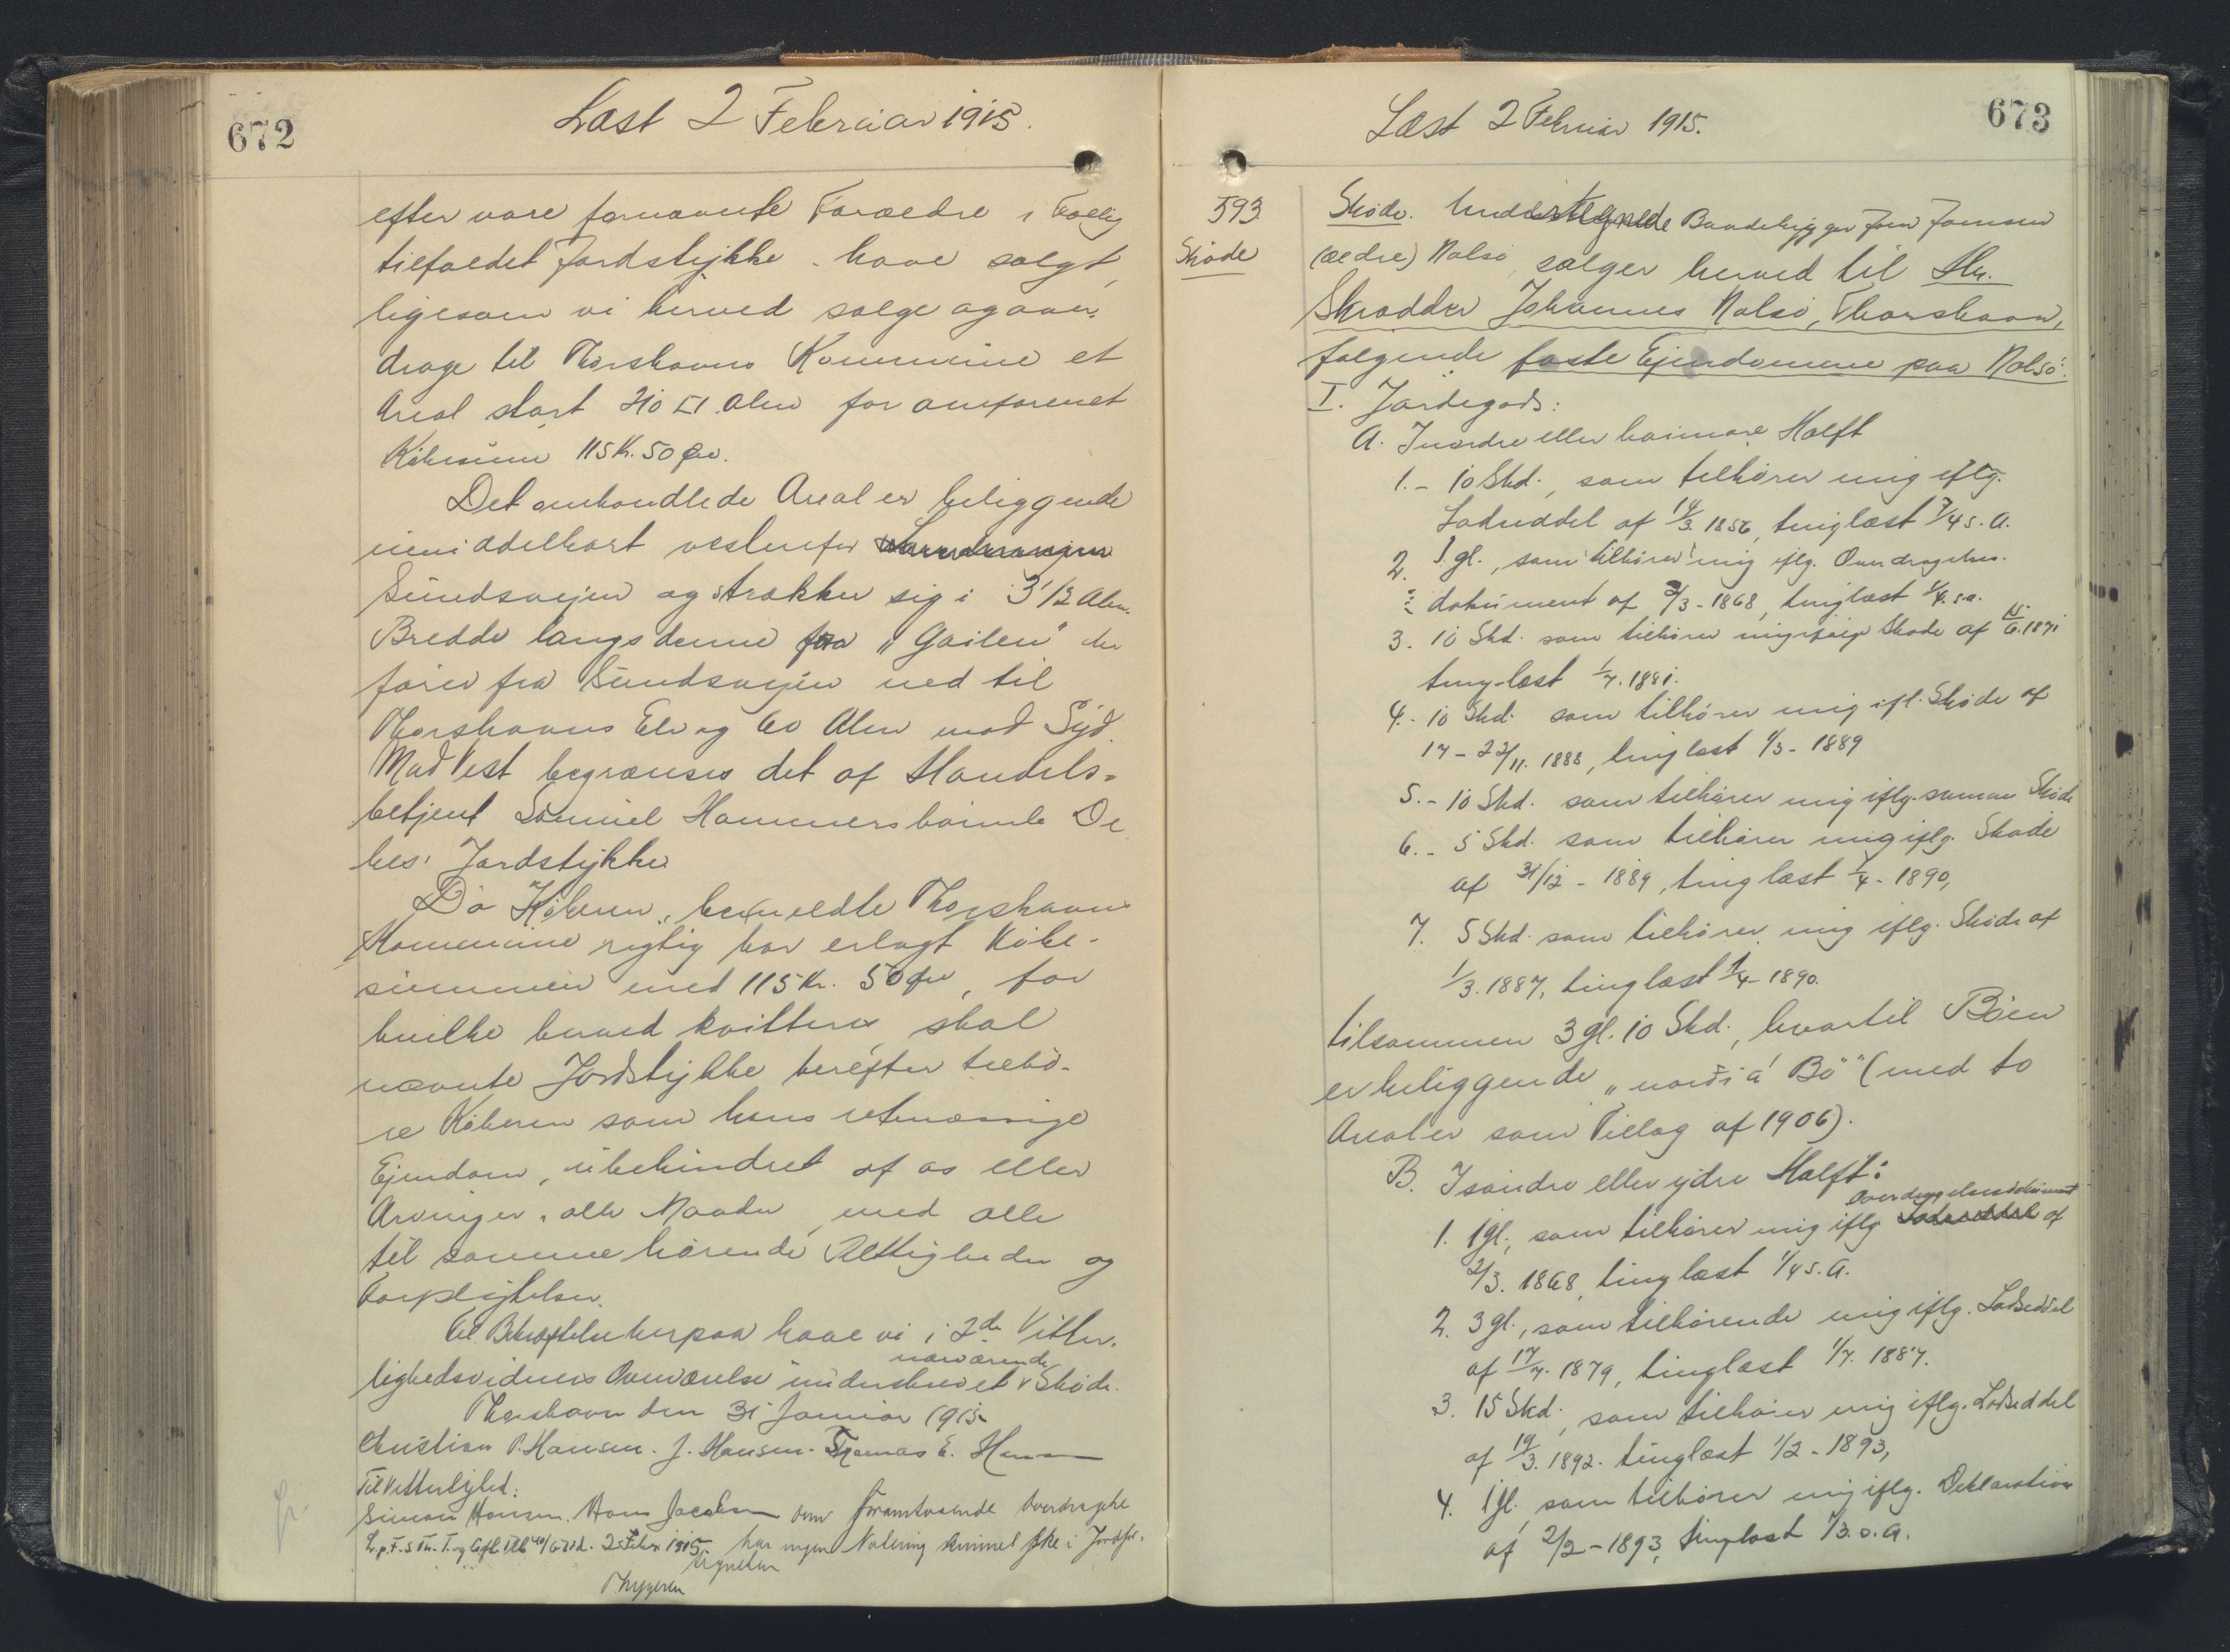 672
Læst 2 Februar 1915.
efter vore fornævnte Forældre i Fællig
tilfaldet Jordstykke - have solgt,
ligesom vi herved sælge og over-
drage til Thorshavns Kommune et
Areal stort 210 □ Alen for omforenet
Købesum 115 Kr. 50 Øre.
Det omhandlede Areal er beliggende
umiddelbart vestenfor
Sundsvejen og strækker sig i 3 1/2 Alen
Bredde langs denne fra "Gailen" der
fører fra Sundsvejen ned til
Thorshavns Elv og 60 Alen mod Syd.
Mod Vest begrænses det af Handels-
betjent Samuel Hammershaimb De
bes' Jordstykke.
Da Køberen, bemeldte Thorshavns
Kommune rigtig har erlagt Købe-
summen med 115 Kr. 50 Øre, for
hvilke herved kvitteres, skal
nævnte Jordstykke herefter tilhø-
re Køberen som hans retmæssige
Ejendom, ubehindret af os eller
Arvinger i alle Maader, med alle
til samme hørende Rettigheder og
Forpligtelser.
Til Bekræftelse herpaa have vi i 2de Vitter-
lighedsvidners Overværelse underskrevet nærværende Skøde.
Thorshavn den 31 Januar 1915
Christian P. Hansen. J. Hansen. Thomas E. Hansen
Til Vitterlighed:
Simon Hansen. Hans Jacobsen Om foranstaaende Overdragelse
2 Febr 1915. har ingen Notering kunnet ske i Jordfor-
673
Læst 2 Februar 1915.
593
Skøde
Skøde. Undertegnede Bondebygger Joen Joensen
(ældre) Nolsø, sælger herved til Hr.
Skrædder Johannes Nolsø, Thorshavn,
følgende faste Ejendomme paa Nolsø:
I. Jordegods:
A. Inardre eller haimare Halft
1. - 10 Skd., som tilhører mig iflg.
Lodseddel af 14/3 1856, tinglæst 7/4 s. A.
2. 1 gl., som tilhører mig iflg. Overdragelses-
dokument af 2/3 - 1868, tinglæst 1/4 s.a.
3. 10 Skd. som tilhører mig ifølge Skøde af 15/6. 1871
tinglæst 1/7. 1881.
4. - 10 Skd. som tilhører mig ifl. Skøde af
17 - 22/11. 1888, tinglæst 1/3 - 1889
5. - 10 Skd. som tilhører mig iflg. samme Skøde
6. - 5 Skd. som tilhører mig iflg. Skøde
af 31/12 - 1889, tinglæst 1/4 - 1890,
7. 5 Skd. som tilhører mig iflg. Skøde af
1/3. 1887, tinglæst 1/4 - 1890.
tilsammen 3 gl. 10 Skd., hvortil Bøen
er beliggende "norði á Bø" (med to
Arealer som Tillæg af 1906).
B. Isandre eller ydre Halft:
1. 1 gl., som tilhører mig iflg. Overdragelsesdokument af
2/3. 1868, tinglæst 1/4 s. A.
2. 3 gl., som tilhørende mig iflg. Lodseddel
af 17/7. 1879, tinglæst 1/7. 1887.
3. 15 Skd., som tilhører mig iflg. Lodseddel
af 19/3. 1892. tinglæst 1/2 - 1893,
4. 1 gl., som tilhører mig iflg. Deklaration
af 2/2 - 1893, tinglæst 1/3. s. A.